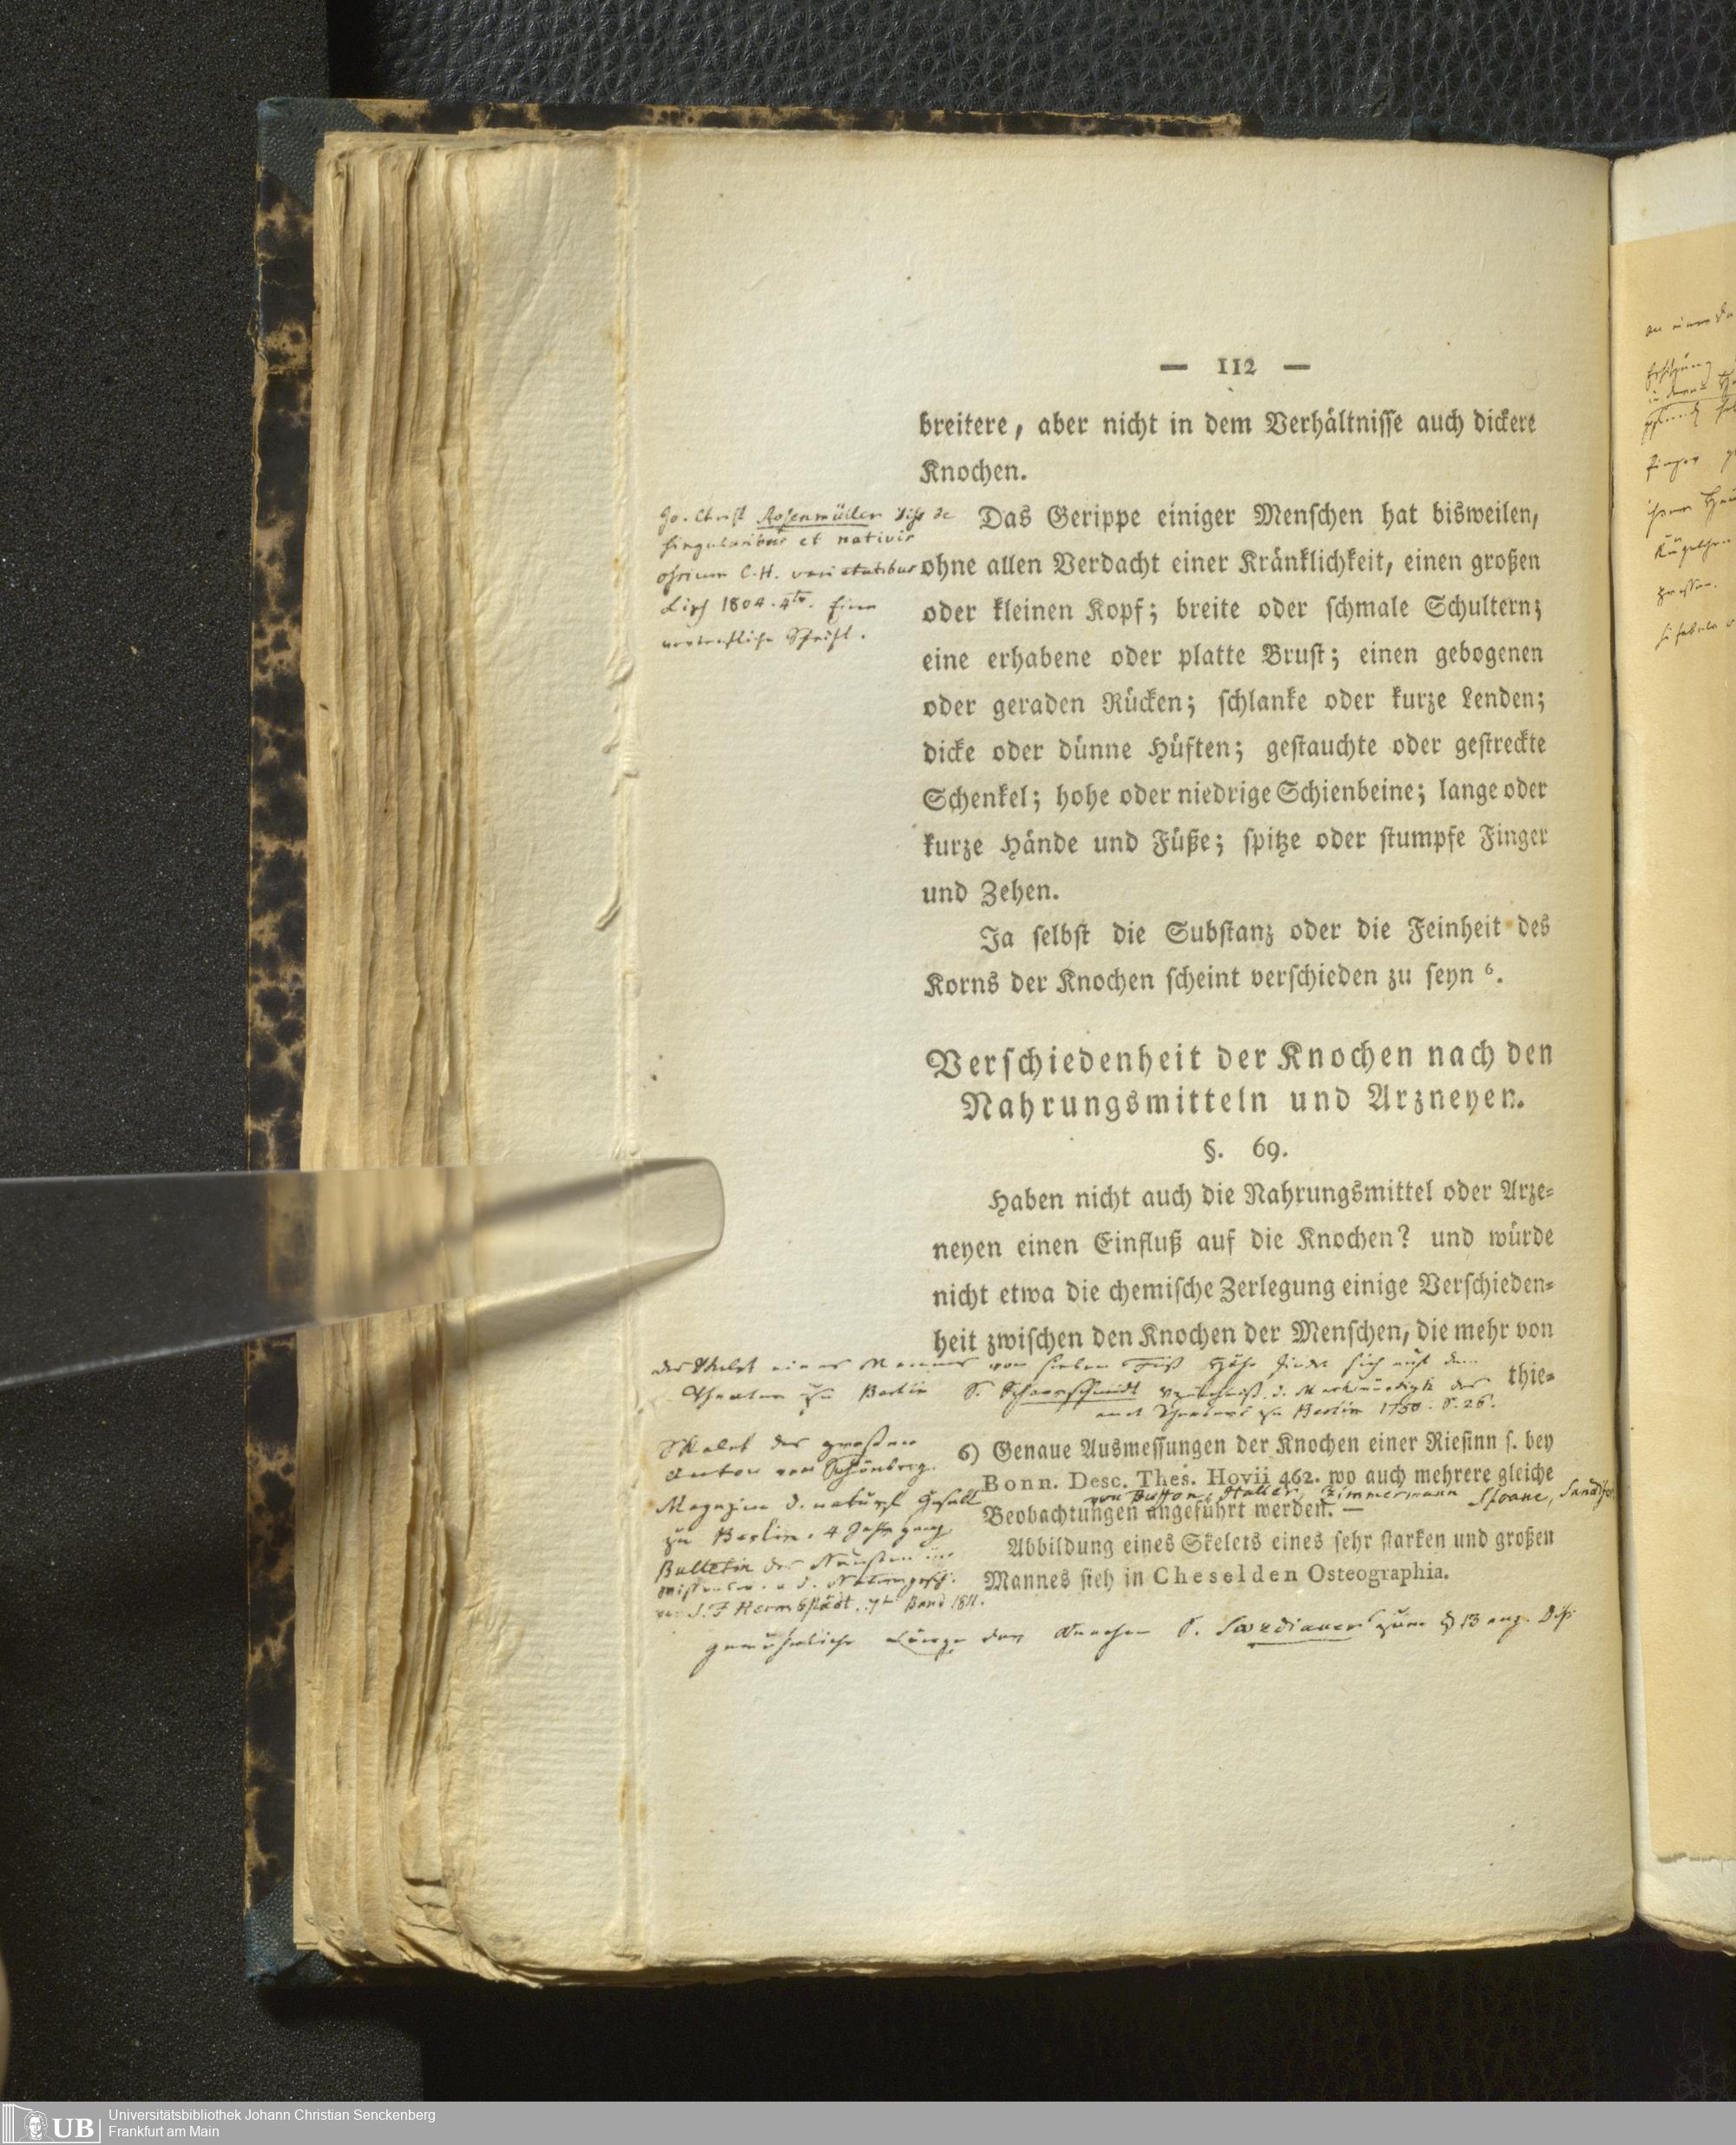 — 112 —
breitere, aber nicht in dem Verhältnisse auch dickere
Knochen.
Jo. Christ Rosenmüller Diss de
singularibus et nativis
ossium C. H. varietatibus
Lips 1804. 4to. Eine
vortreffliche Schrift.
Das Gerippe einiger Menschen hat bisweilen,
ohne allen Verdacht einer Kränklichkeit, einen großen
oder kleinen Kopf; breite oder schmale Schultern;
eine erhabene oder platte Brust; einen gebogenen
oder geraden Rücken; schlanke oder kurze Lenden;
dicke oder dünne Hüften; gestauchte oder gestreckte
Schenkel; hohe oder niedrige Schienbeine; lange oder
kurze Hände und Füße; spitze oder stumpfe Finger
und Zehen.
Ja selbst die Substanz oder die Feinheit des
Korns der Knochen scheint verschieden zu seyn ⁶.
Verschiedenheit der Knochen nach den
Nahrungsmitteln und Arzneyen.
§. 69.
Haben nicht auch die Nahrungsmittel oder Arze=
neyen einen Einfluß auf die Knochen? und würde
nicht etwa die chemische Zerlegung einige Verschieden=
heit zwischen den Knochen der Menschen, die mehr von
thie=
das Skelet eines Mannes von sieben Fuß Höhe findet sich auf dem
Theater zu Berlin S. Schaarschmidt Verzeichniß d. Merkwürdigk des
anat Theaters zu Berlin 1750. S. 26.
Skelet des großen
Anton von Schönberg.
Magazin d. naturf Gesell
zu Berlin. 4 Jahrgang
Bulletin des Neusten
v. S. F Hermbstädt. 7ter Band 1811.
6) Genaue Ausmessungen der Knochen einer Riesinn s. bey
Bonn. Desc. Thes. Hovii 462. wo auch mehrere gleiche
von Buffon, Haller, Zimmermann Sloane, Sandifort
Beobachtungen angeführt werden. —
Abbildung eines Skelets eines sehr starken und großen
Mannes sieh in Cheselden Osteographia.
gewöhnliche Länge der Knochen S. Swediauer zum § 13 ang. Diss
Universitätsbibliothek Johann Christian Senckenberg
Frankfurt am Main
UB